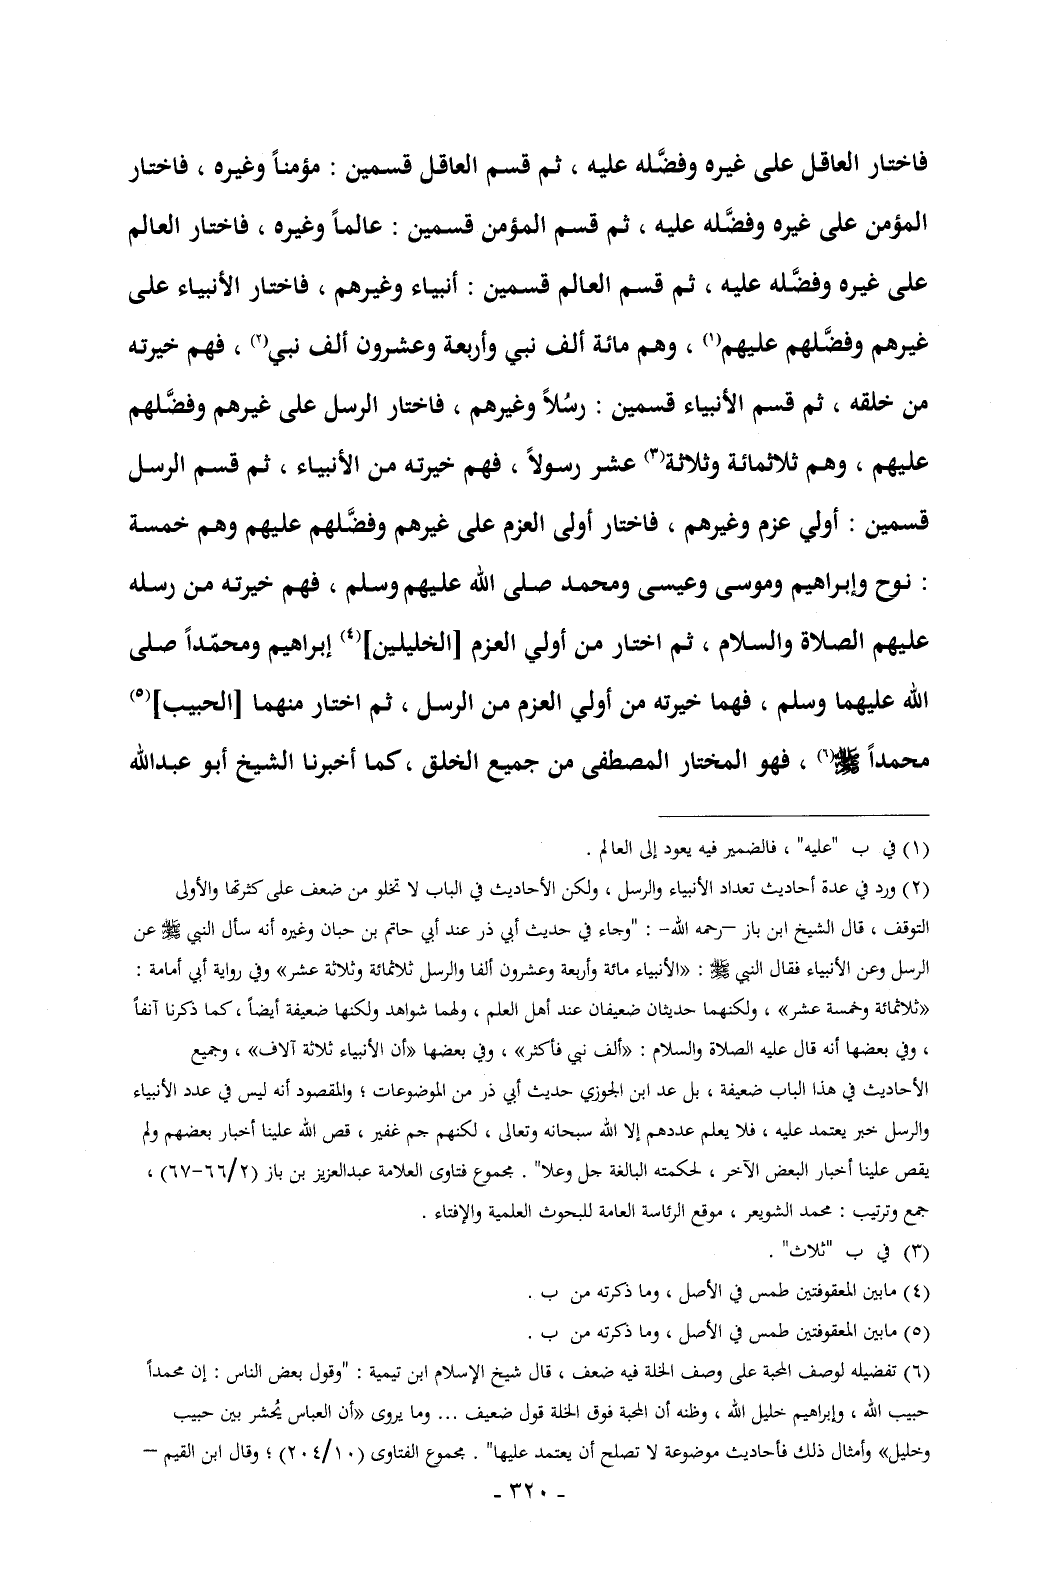 فاختار العاقل على غيره وفضَّله عليه ، ثم قسم العاقل قسمين : مؤمناً وغيره ، فاختار
المؤمن على غيره وفضَّله عليه ، ثم قسم المؤمن قسمين : عالماً وغيره ، فاختار العالم
على غيره وفضَّله عليه ، ثم قسم العالم قسمين : أنبياء وغيرهم ، فاختار الأنبياء على
غيرهم وفضَّلهم عليهم(١) ، وهم مائة ألف نبي وأربعة وعشرون ألف نبي(٢) ، فهم خيرته
من خلقه ، ثم قسم الأنبياء قسمين : رسُلاً وغيرهم ، فاختار الرسل على غيرهم وفضَّلهم
عليهم ، وهم ثلاثمائة وثلاثة(٣) عشر رسولاً ، فهم خيرته من الأنبياء ، ثم قسم الرسل
قسمين : أولي عزم وغيرهم ، فاختار أولى العزم على غيرهم وفضَّلهم عليهم وهم خمسة
: نوح وإبراهيم وموسى وعيسى ومحمد صلى الله عليهم وسلم ، فهم خيرته من رسله
عليهم الصلاة والسلام ، ثم اختار من أولي العزم [الخليلين](٤) إبراهيم ومحمّداً صلى
الله عليهما وسلم ، فهما خيرته من أولي العزم من الرسل ، ثم اختار منهما [الحبيب](٥)
محمداً ﷺ(٦) ، فهو المختار المصطفى من جميع الخلق ، كما أخبرنا الشيخ أبو عبدالله
(١) في ب "عليه" ، فالضمير فيه يعود إلى العالم .
(٢) ورد في عدة أحاديث تعداد الأنبياء والرسل ، ولكن الأحاديث في الباب لا تخلو من ضعف على كثرتها والأولى
التوقف ، قال الشيخ ابن باز –رحمه الله- : "وجاء في حديث أبي ذر عند أبي حاتم بن حبان وغيره أنه سأل النبي ﷺ عن
الرسل وعن الأنبياء فقال النبي ﷺ : «الأنبياء مائة وأربعة وعشرون ألفا والرسل ثلاثمائة وثلاثة عشر» وفي رواية أبي أمامة :
«ثلاثمائة وخمسة عشر» ، ولكنهما حديثان ضعيفان عند أهل العلم ، ولهما شواهد ولكنها ضعيفة أيضاً ، كما ذكرنا آنفاً
، وفي بعضها أنه قال عليه الصلاة والسلام : «ألف نبي فأكثر» ، وفي بعضها «أن الأنبياء ثلاثة آلاف» ، وجميع
الأحاديث في هذا الباب ضعيفة ، بل عد ابن الجوزي حديث أبي ذر من الموضوعات ؛ والمقصود أنه ليس في عدد الأنبياء
والرسل خبر يعتمد عليه ، فلا يعلم عددهم إلا الله سبحانه وتعالى ، لكنهم جم غفير ، قص الله علينا أخبار بعضهم ولم
يقص علينا أخبار البعض الآخر ، لحكمته البالغة جل وعلا" . مجموع فتاوى العلامة عبدالعزيز بن باز (٢/٦٦-٦٧) ،
جمع وترتيب : محمد الشويعر ، موقع الرئاسة العامة للبحوث العلمية والإفتاء .
(٣) في ب "ثلاث" .
(٤) مابين المعقوفتين طمس في الأصل ، وما ذكرته من ب .
(٥) مابين المعقوفتين طمس في الأصل ، وما ذكرته من ب .
(٦) تفضيله لوصف المحبة على وصف الخلة فيه ضعف ، قال شيخ الإسلام ابن تيمية : "وقول بعض الناس : إن محمداً
حبيب الله ، وإبراهيم خليل الله ، وظنه أن المحبة فوق الخلة قول ضعيف ... وما يروى «أن العباس يُحشر بين حبيب
وخليل» وأمثال ذلك فأحاديث موضوعة لا تصلح أن يعتمد عليها" . مجموع الفتاوى (١٠/٢٠٤) ؛ وقال ابن القيم –
- ٣٢٠ -